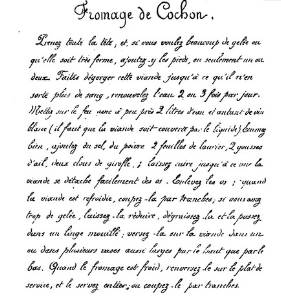 Fromage de Cochon.
Prenez toute la tête, et, si vous voulez beaucoup de gelée ou
qu'elle soit très ferme, ajoutez-y les pieds, ou seulement un ou
deux. Faites dégorger cette viande jusqu'à ce qu'il n'en
sorte plus de sang, renouvelez l'eau 2 ou 3 fois par jour.
Mettez sur le feu avec à peu près 2 litres d'eau et autant de vin
blanc (il faut que la viande soit couverte par le liquide) Ecumez
bien, ajoutez du sel, du poivre 2 feuilles de laurier, 2 gousses
d'ail, deux clous de girofle; laissez cuire jusqu'à ce que la
viande se détache facilement des os. Enlevez les os; quand
la viande est refroidie, coupez-la par tranches, si vous avez
trop de gelée, laissez-la réduire, dégraissez-la et la passez
dans un linge mouillé; versez-la sur la viande dans un
ou dans plusieurs vases aussi larges par le haut que par le
bas. Quand le fromage est froid, renversez-le sur le plat de
service, et le servez entier, ou coupez-le par tranches.